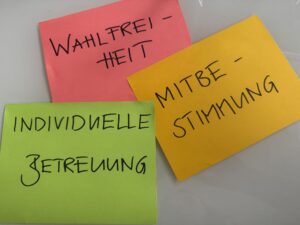 WAHLFREI-
HEIT
MITBE-
STIMMUNG
INDIVIDUELLE
BETREUUNG